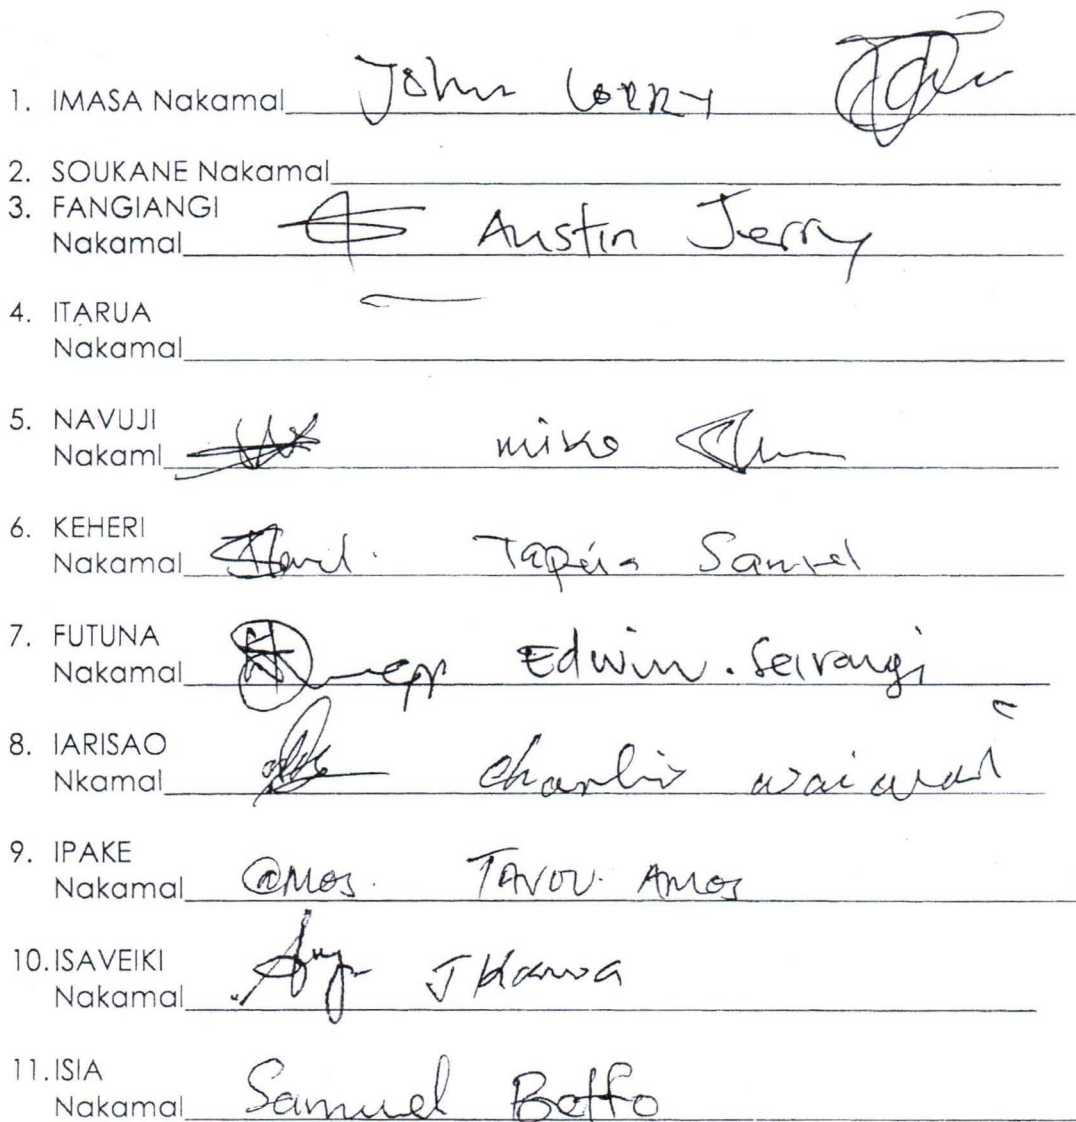 1. IMASA Nakamal John
2. SOUKANE Nakamal
3. FANGIANGI
Nakamal Austin Jerry
4. ITARUA
Nakamal
5. NAVUJI
Nakaml mike
6. KEHERI
Nakamal Samuel
7. FUTUNA
Nakamal Edwin. Seirangi
8. IARISAO
Nkamal
9. IPAKE
Nakamal @mos. TAVOU. AMOS
10. ISAVEIKI
Nakamal
11. ISIA
Nakamal Samuel